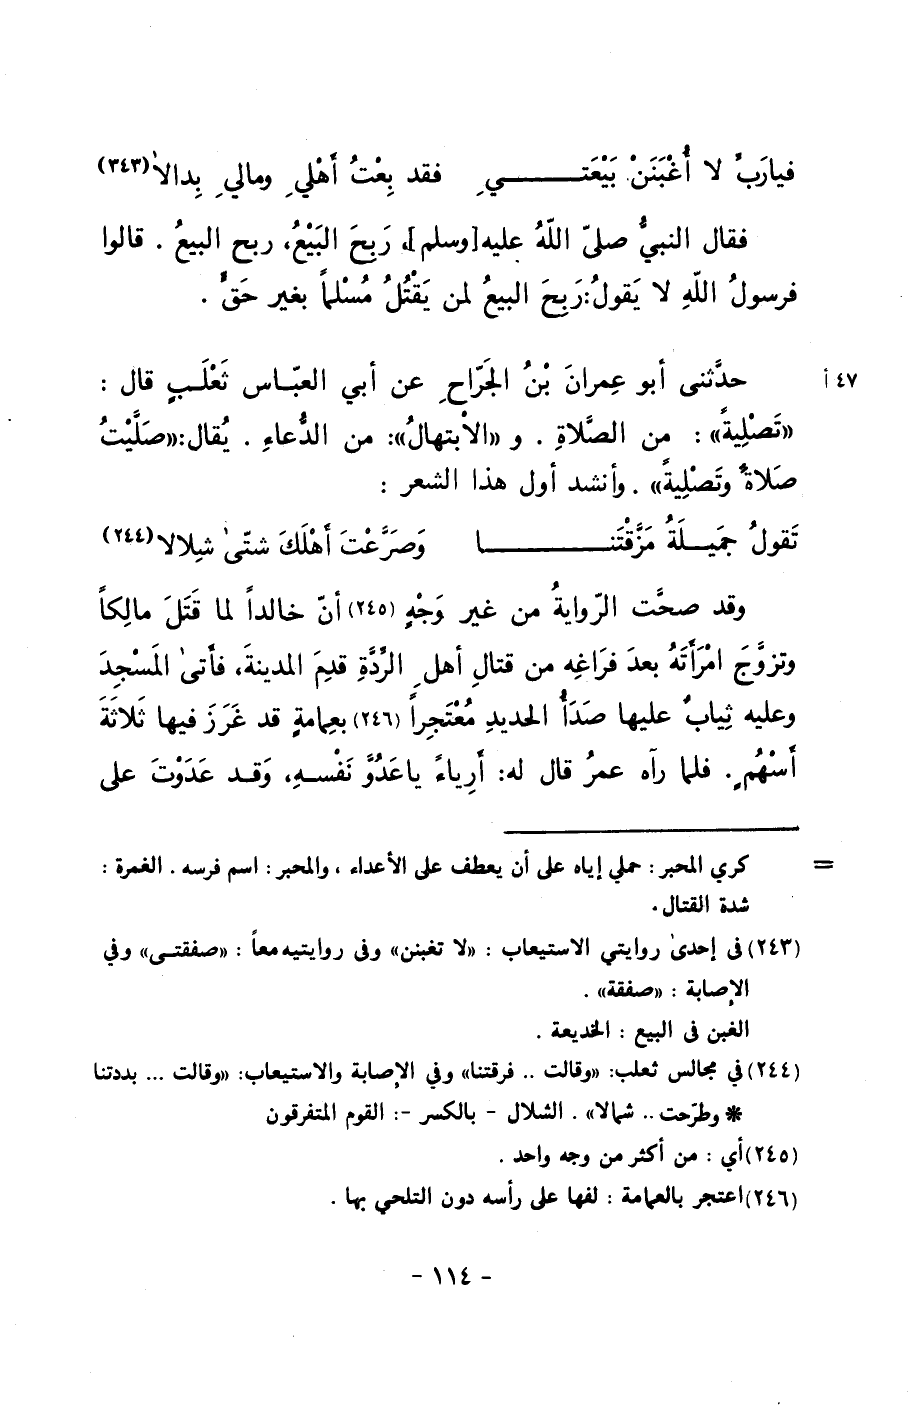 فيارَبِّ لا أُغْبَنَنْ بَيْعَتـــــــي فقد بِعْتُ أَهْلي ومالي بِدالا (٣٤٣)
فقال النبيُّ صلىّ اللّهُ عليه [وسلم]، رَبِحَ البَيْعُ، ربح البيعُ . قالوا
فرسولُ اللّهِ لا يَقولُ: رَبِحَ البيعُ لمن يَقْتُلُ مُسْلماً بغير حَقٍّ .
٤٧ أ
حدَّثنى أبو عِمرانَ بْنُ الجَرّاحِ عن أبي العبّاس ثَعْلَبٍ قال :
«تَصْلِيةً» : من الصَّلاةِ . و «الابْتهالُ»: من الدُّعاءِ . يُقال: «صَلَّيْتُ
صَلاةً وتَصْلِيةً» . وأنشد أول هذا الشعر :
تَقولُ جَميـلَةُ مَزَّقْتَنـــــــا وَصَرَّعْتَ أَهْلَكَ شتّىٰ شِلالا (٢٤٤)
وقد صحَّت الرّوايةُ من غير وَجْهٍ (٢٤٥) أنّ خالداً لما قَتَلَ مالِكاً
وتزوَّجَ امْرَأَتَهُ بعدَ فَراغِه من قتالِ أهلِ الرِّدَّةِ قدِمَ المدينةَ، فأتىٰ المَسْجِدَ
وعليه ثِيابٌ عليها صَدَأُ الحديدِ مُعْتَجِراً (٢٤٦) بعِمامةٍ قد غَرَزَ فيها ثَلاثَةَ
أَسْهُمٍ . فلما رآه عمرُ قال له: أَرِياءً ياعَدُوَّ نَفْسه، وَقـد عَدَوْتَ على
= كري المحبر : حملي إياه على أن يعطف على الأعداء ، والمحبر : اسم فرسه . الغمرة :
شدة القتال.
(٢٤٣) فى إحدىٰ روايتي الاستيعاب : «لا تغبنن» وفى روايتيه معاً : «صفقتـى» وفي
الإصابة : «صفقة» .
الغبن فى البيع : الخديعة .
(٢٤٤) في مجالس ثعلب: «وقالت .. فرقتنا» وفي الإصابة والاستيعاب: «وقالت ... بددتنا
* وطرّحت .. شمالا» . الشلال - بالكسر -: القوم المتفرقون
(٢٤٥) أي : من أكثر من وجه واحد .
(٢٤٦) اعتجر بالعمامة : لفها على رأسه دون التلحي بها .
- ١١٤ -